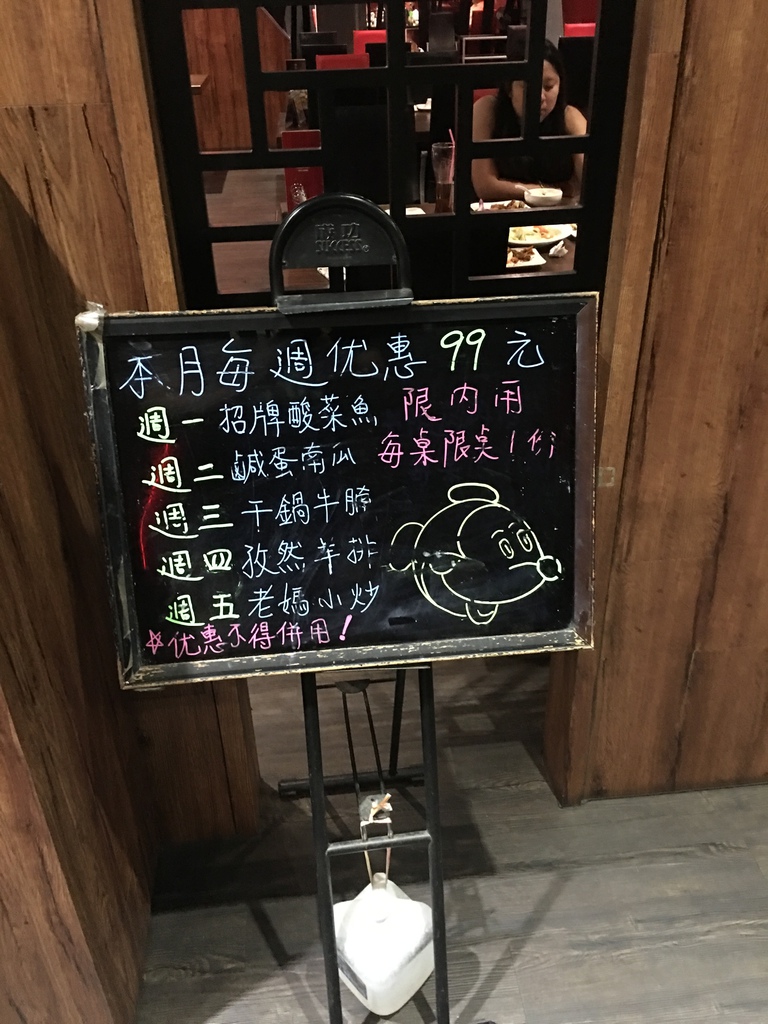 成功
SUCCESS
本月每週优惠 99 元
限內用
週一 招牌酸菜魚
每桌限点1份
週二 鹹蛋南瓜
週三 干鍋牛腩
週四 孜然羊排
週五 老媽小炒
☆优惠不得併用!